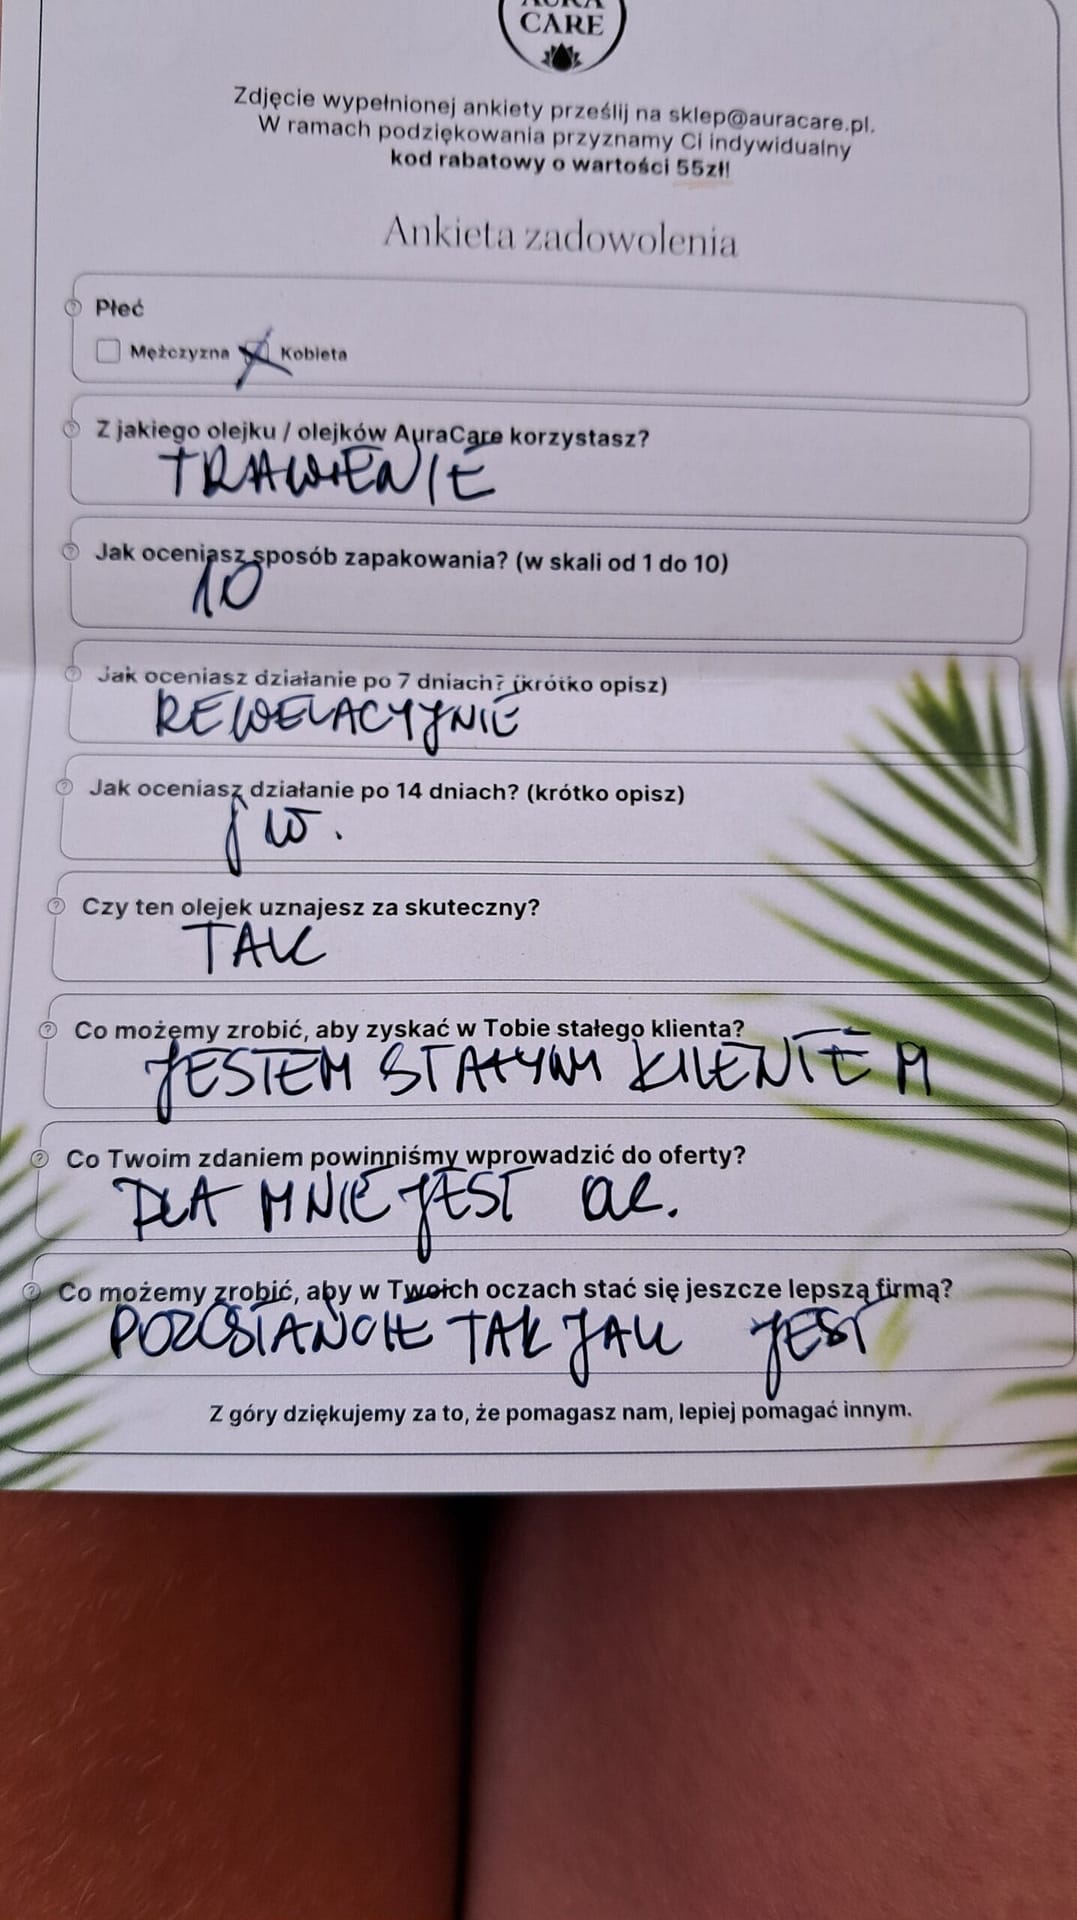 AURA
CARE
Zdjęcie wypełnionej ankiety prześlij na sklep@auracare.pl.
W ramach podziękowania przyznamy Ci indywidualny
kod rabatowy o wartości 55zł!
Ankieta zadowolenia
Płeć
Mężczyzna Kobieta
Z jakiego olejku / olejków AuraCare korzystasz?
TRAWIENIE
Jak oceniasz sposób zapakowania? (w skali od 1 do 10)
10
Jak oceniasz działanie po 7 dniach? (krótko opisz)
REWELACYJNIE
Jak oceniasz działanie po 14 dniach? (krótko opisz)
jw.
Czy ten olejek uznajesz za skuteczny?
TAK
Co możemy zrobić, aby zyskać w Tobie stałego klienta?
JESTEM STAŁYM KLIENTEM
Co Twoim zdaniem powinniśmy wprowadzić do oferty?
DLA MNIE JEST OK.
Co możemy zrobić, aby w Twoich oczach stać się jeszcze lepszą firmą?
POZOSTAŃCIE TAK JAK JEST
Z góry dziękujemy za to, że pomagasz nam, lepiej pomagać innym.